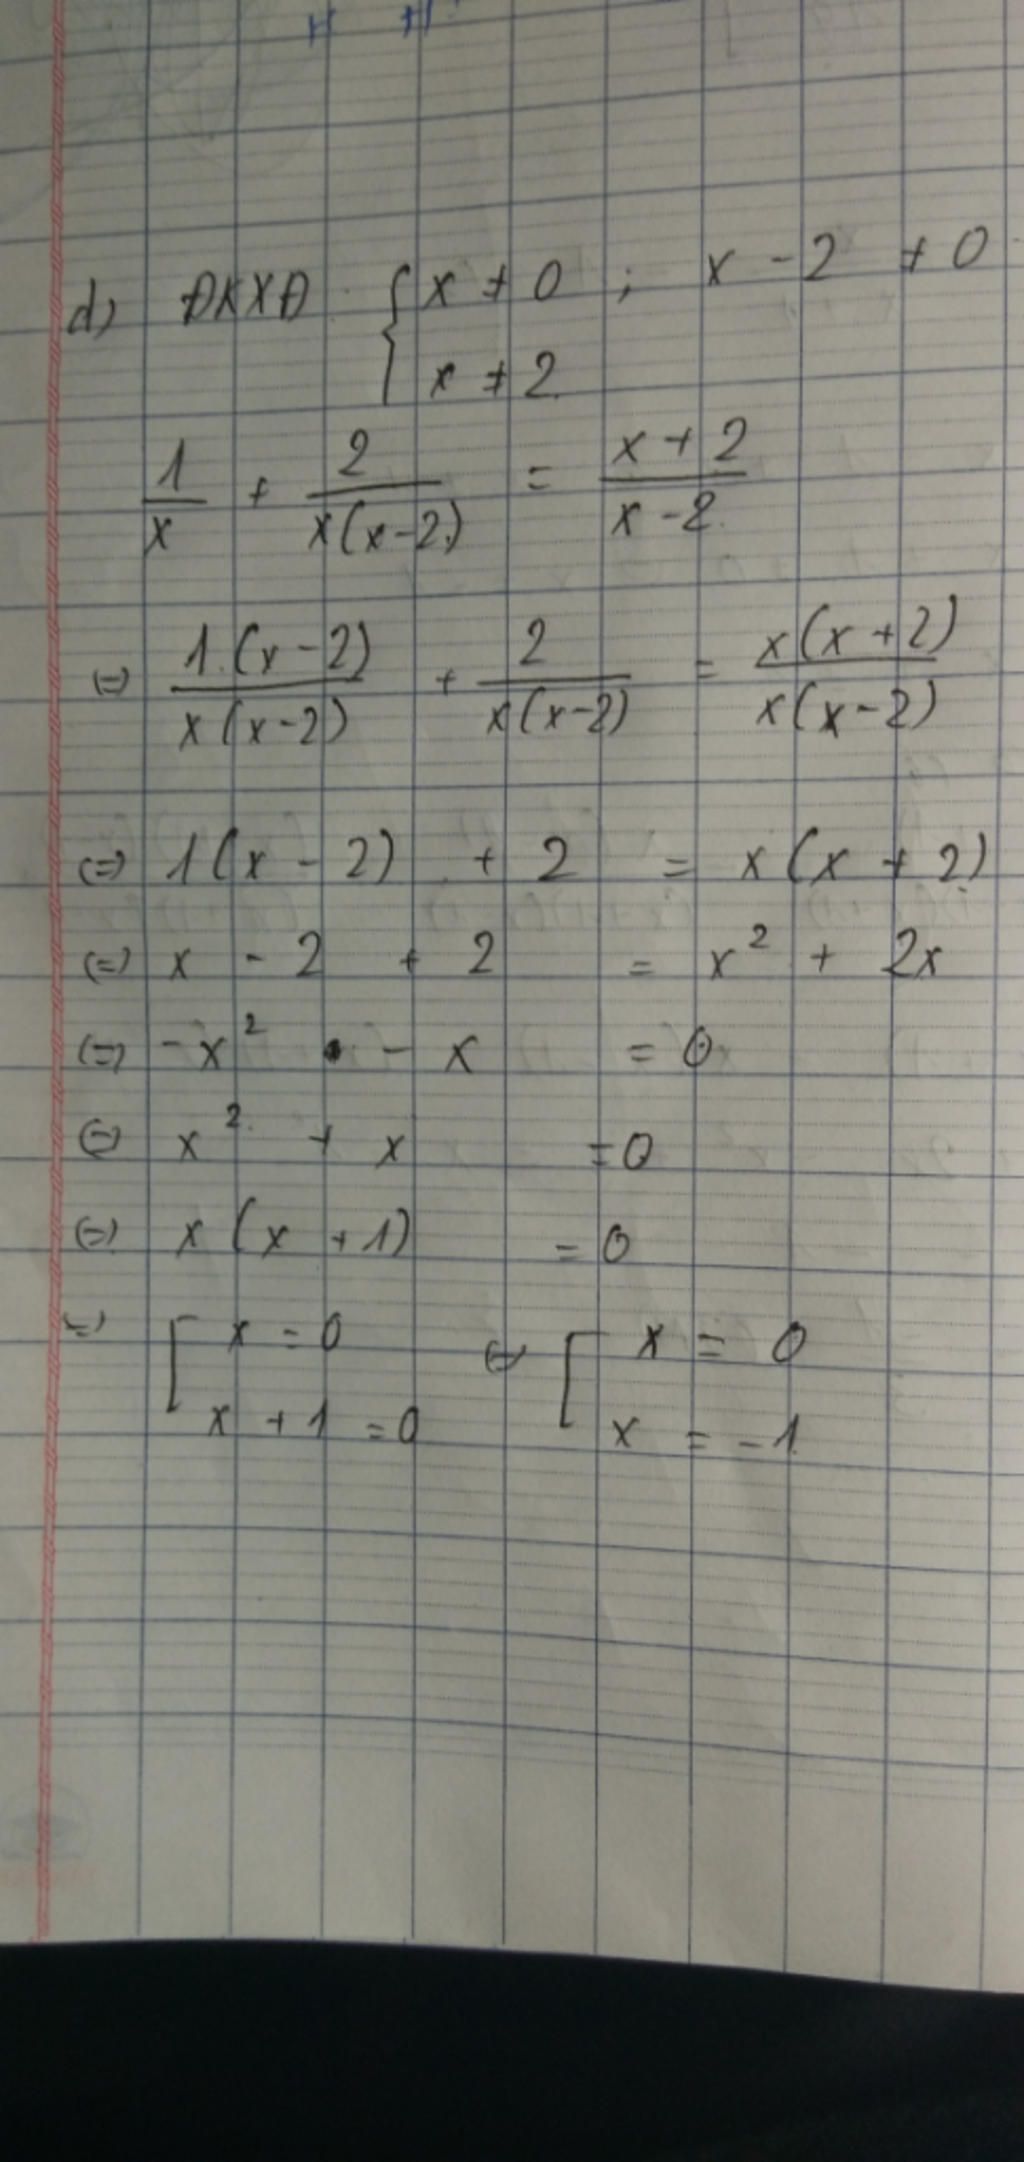 d) ĐKXĐ : { x ≠ 0 ; x - 2 ≠ 0
x ≠ 2
1/x + 2/x(x-2) = x+2/x-2
(=) 1.(x-2)/x(x-2) + 2/x(x-2) = x(x+2)/x(x-2)
(=) 1(x - 2) + 2 = x(x + 2)
(=) x - 2 + 2 = x² + 2x
(=) -x² - x = 0
(=) x² + x = 0
(=) x(x + 1) = 0
(=) [ x = 0 (=) [ x = 0
x + 1 = 0 x = -1